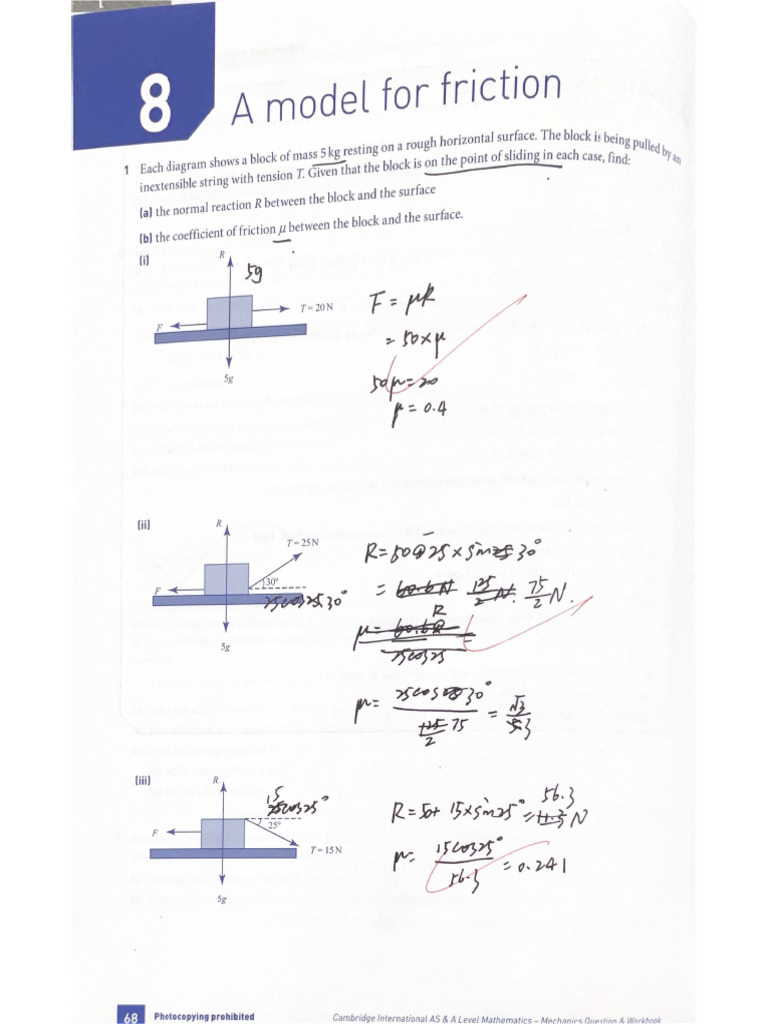 8 A model for friction
1 Each diagram shows a block of mass 5 kg resting on a rough horizontal surface. The block is being pulled by an
inextensible string with tension T. Given that the block is on the point of sliding in each case, find:
(a) the normal reaction R between the block and the surface
(b) the coefficient of friction μ between the block and the surface.
(i)
R
5g
T = 20 N
F
5g
F = μR
= 50×μ
50μ = 20
μ = 0.4
(ii)
R
T = 25 N
30°
F
25cos 30°
5g
R = 50 - 25 × sin 30°
= 60.6N 125/2 N. 75/2 N.
R
μ = 60.6R / 25cos25 =
μ = 25cos 30° / 75/2 = √3/3
(iii)
R
15cos25°
25°
F
T = 15 N
5g
R = 50 + 15×sin25° = 56.3 N
μ = 15cos25° / 56.3 = 0.241
68 Photocopying prohibited
Cambridge International AS & A Level Mathematics – Mechanics Question & Workbook